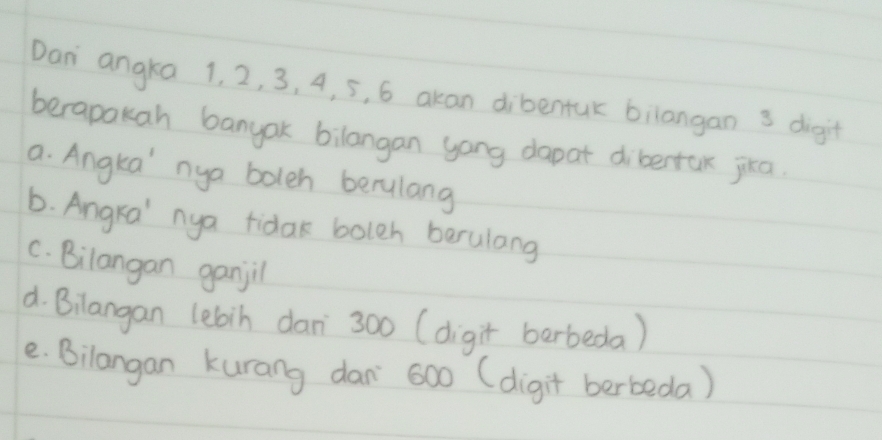 Dari angka 1, 2, 3, 4, 5, 6 akan dibentuk bilangan 3 digit
berapakah banyak bilangan yang dapat dibentuk jika.
a. Angka' nya boleh berulang
b. Angka' nya tidak boleh berulang
c. Bilangan ganjil
d. Bilangan lebih dari 300 (digit berbeda)
e. Bilangan kurang dari 600 (digit berbeda)